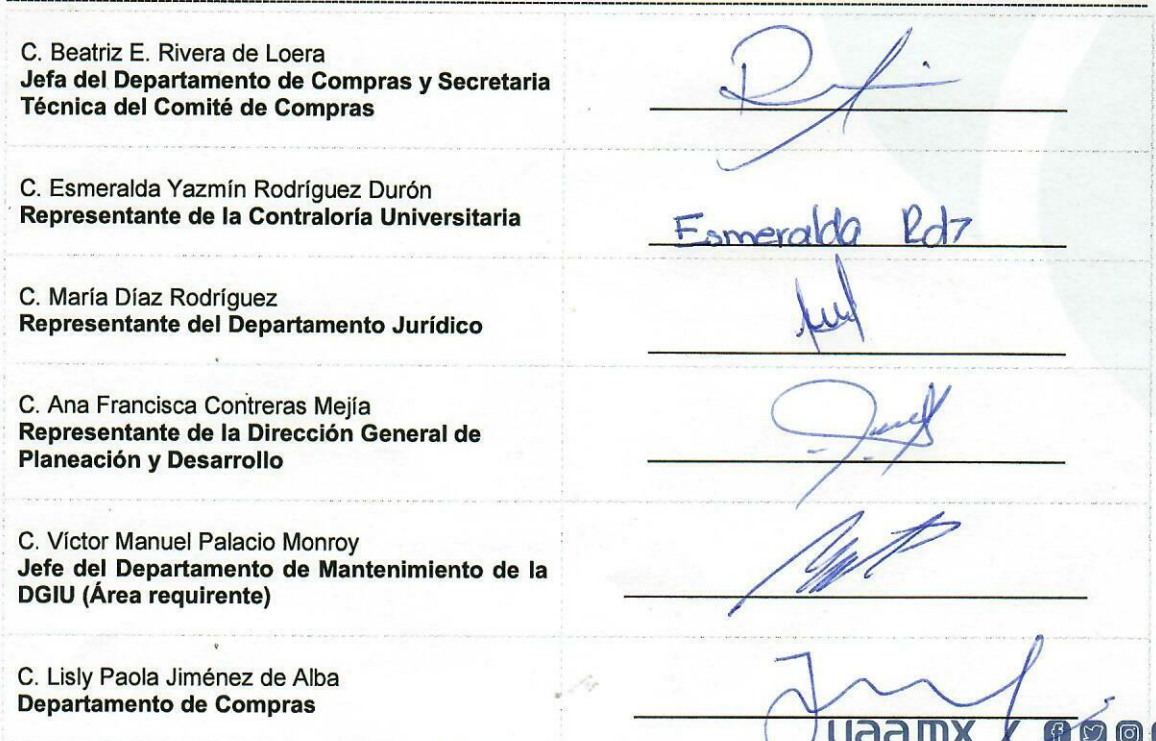 C. Beatriz E. Rivera de Loera
Jefa del Departamento de Compras y Secretaria
Técnica del Comité de Compras
C. Esmeralda Yazmín Rodríguez Durón
Representante de la Contraloría Universitaria
Esmeralda Rdz
C. María Díaz Rodríguez
Representante del Departamento Jurídico
C. Ana Francisca Contreras Mejía
Representante de la Dirección General de
Planeación y Desarrollo
C. Víctor Manuel Palacio Monroy
Jefe del Departamento de Mantenimiento de la
DGIU (Área requirente)
C. Lisly Paola Jiménez de Alba
Departamento de Compras
uaamx /